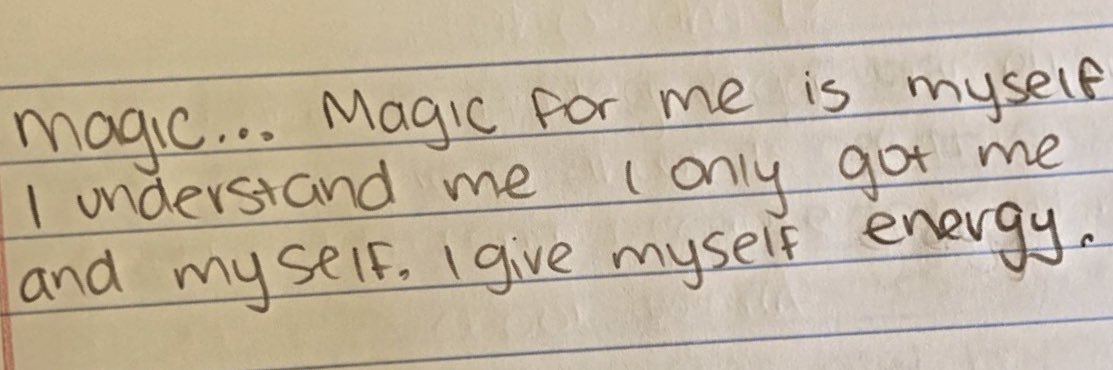 magic... Magic for me is myself
I understand me I only got me
and myself. I give myself energy.